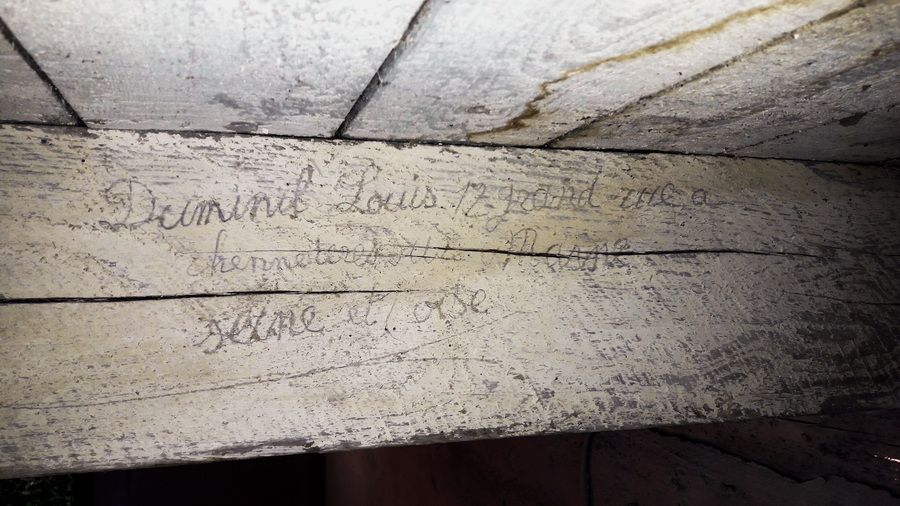 Duminil Louis 17 grand rue a
chennetieres sur Marne
seine et oise